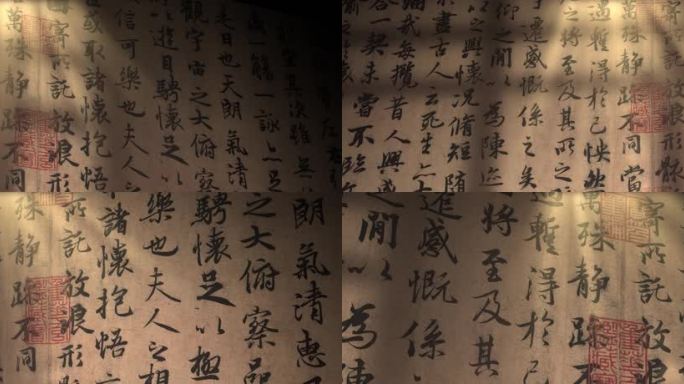 坐其次雖無
一觴一詠亦足
日也天朗氣清
觀宇宙之大俯察
遊目騁懷足以
信可樂也夫人
或取諸懷抱悟
寄所託放浪形
萬殊靜躁不同
寄所託放浪形骸
萬殊靜躁不同當
過暫得於己怏然
將至及其所之
遷感慨係之矣
仰之閒以為陳迹
以之興懷況脩短隨
盡古人云死生亦大
哉每攬昔人興感
合一契未嘗不臨
朗氣清惠
之大俯察品
騁懷足以極
樂也夫人之相
諸懷抱悟言
所託放浪形
殊靜躁不同
寄所託放浪
萬殊靜躁不同
暫得於己
將至及其
遷感慨係
之閒以為